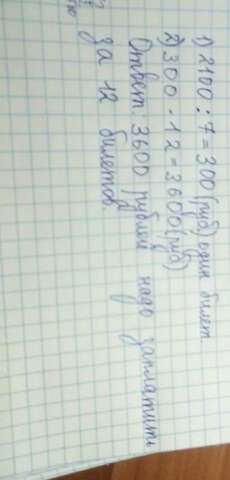 1) 2100 : 7 = 300 (руб) один билет
2) 300 · 12 = 3600 (руб)
Ответ: 3600 рублей надо заплатить
за 12 билетов.